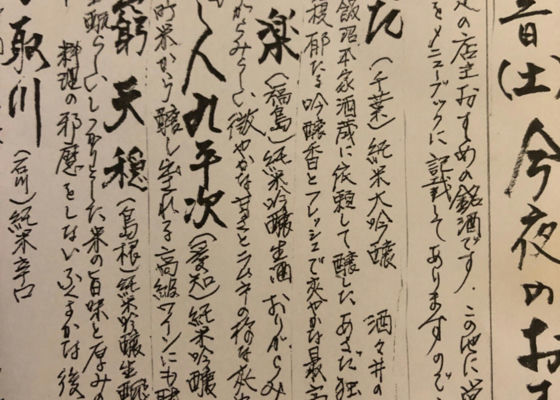 音(土)今夜のお
の店主おすすめの銘酒です。この他に
をメニューブックに記載してありますので
(千葉)純米大吟醸 酒々井の
飯沼本家酒蔵に依頼して醸したあさだ独
郁たる吟醸香とフレッシュで爽やかな最高
楽(福島)純米吟醸生酒おりがらみ
からみらしい微やかな甘さとラムネの様な
し人九平次(愛知)純米吟醸
町米から醸し出される高級ワインにも
窮
天穏(島根)純米吟醸生
らしいしっかりとした米の旨味と厚みの
料理の邪魔をしないふくよかな後
取川(石川)純米辛口